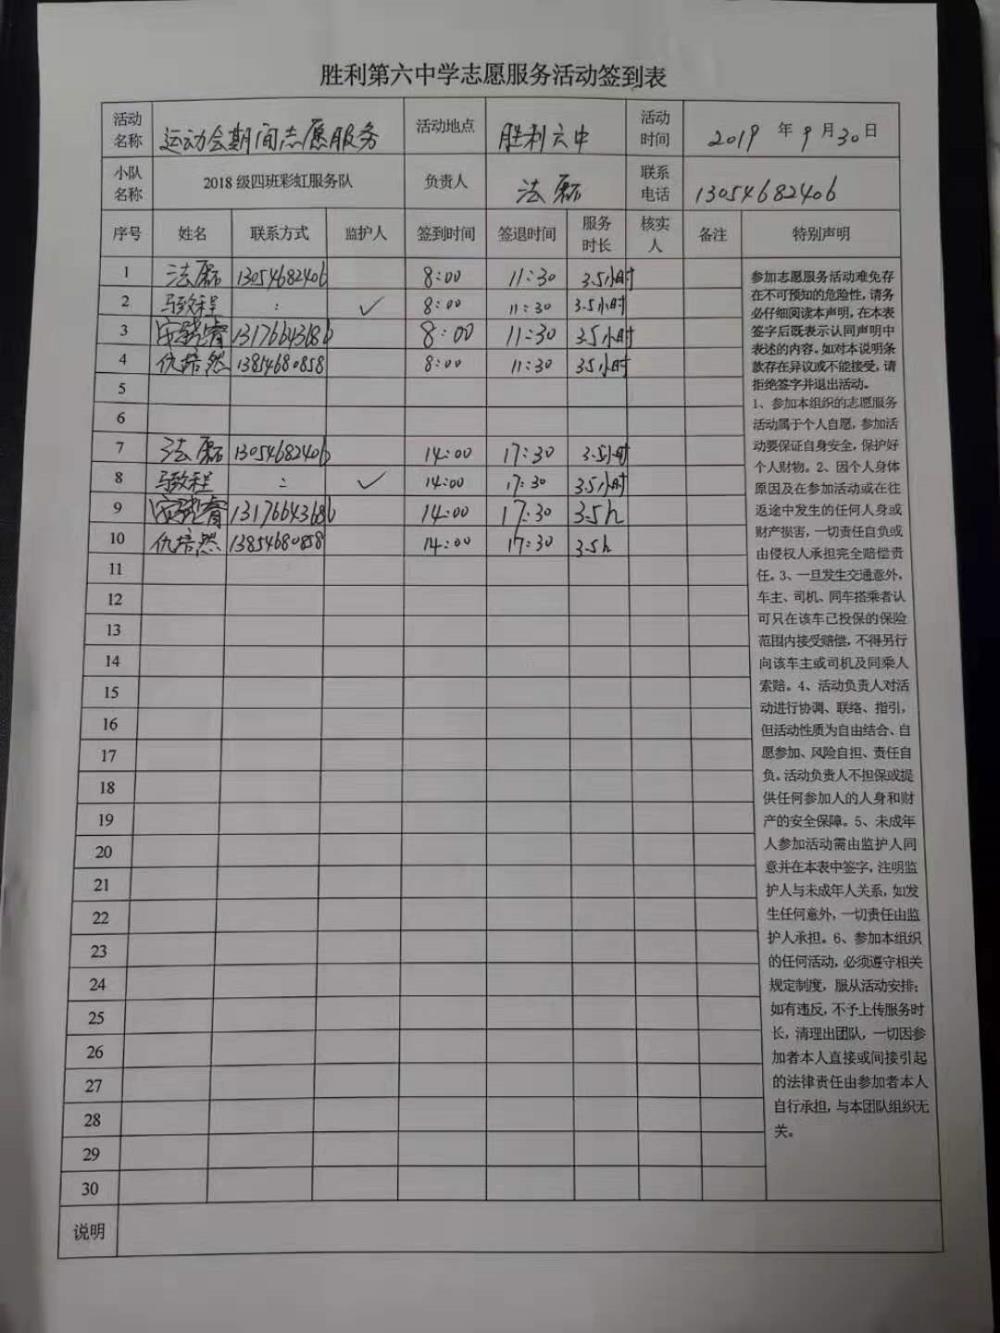 胜利第六中学志愿服务活动签到表
活动名称 运动会期间志愿服务 活动地点 胜利六中 活动时间 2019 年 9 月 30 日
小队名称 2018 级四班彩虹服务队 负责人 法磊 联系电话 13054682406
序号 姓名 联系方式 监护人 签到时间 签退时间 服务时长 核实人 备注 特别声明
1 法磊 13054682406 8:00 11:30 3.5小时
2 马致程 : ✓ 8:00 11:30 3.5小时
3 13176643686 8:00 11:30 3.5小时
4 仇培然 13854680858 8:00 11:30 3.5小时
5
6
7 法磊 13054682406 14:00 17:30 3.5小时
8 马致程 : ✓ 14:00 17:30 3.5小时
9 13176643686 14:00 17:30 3.5h
10 仇培然 13854680858 14:00 17:30 3.5h
11
12
13
14
15
16
17
18
19
20
21
22
23
24
25
26
27
28
29
30
参加志愿服务活动难免存
在不可预知的危险性，请务
必仔细阅读本声明，在本表
签字后既表示认同声明中
表述的内容。如对本说明条
款存在异议或不能接受，请
拒绝签字并退出活动。
1、参加本组织的志愿服务
活动属于个人自愿，参加活
动要保证自身安全，保护好
个人财物。2、因个人身体
原因及在参加活动或在往
返途中发生的任何人身或
财产损害，一切责任自负或
由侵权人承担完全赔偿责
任。3、一旦发生交通意外，
车主、司机、同车搭乘者认
可只在该车已投保的保险
范围内接受赔偿，不得另行
向该车主或司机及同乘人
索赔。4、活动负责人对活
动进行协调、联络、指引，
但活动性质为自由结合、自
愿参加、风险自担、责任自
负。活动负责人不担保或提
供任何参加人的人身和财
产的安全保障。5、未成年
人参加活动需由监护人同
意并在本表中签字，注明监
护人与未成年人关系，如发
生任何意外，一切责任由监
护人承担。6、参加本组织
的任何活动，必须遵守相关
规定制度，服从活动安排；
如有违反，不予上传服务时
长，清理出团队，一切因参
加者本人直接或间接引起
的法律责任由参加者本人
自行承担，与本团队组织无
关。
说明